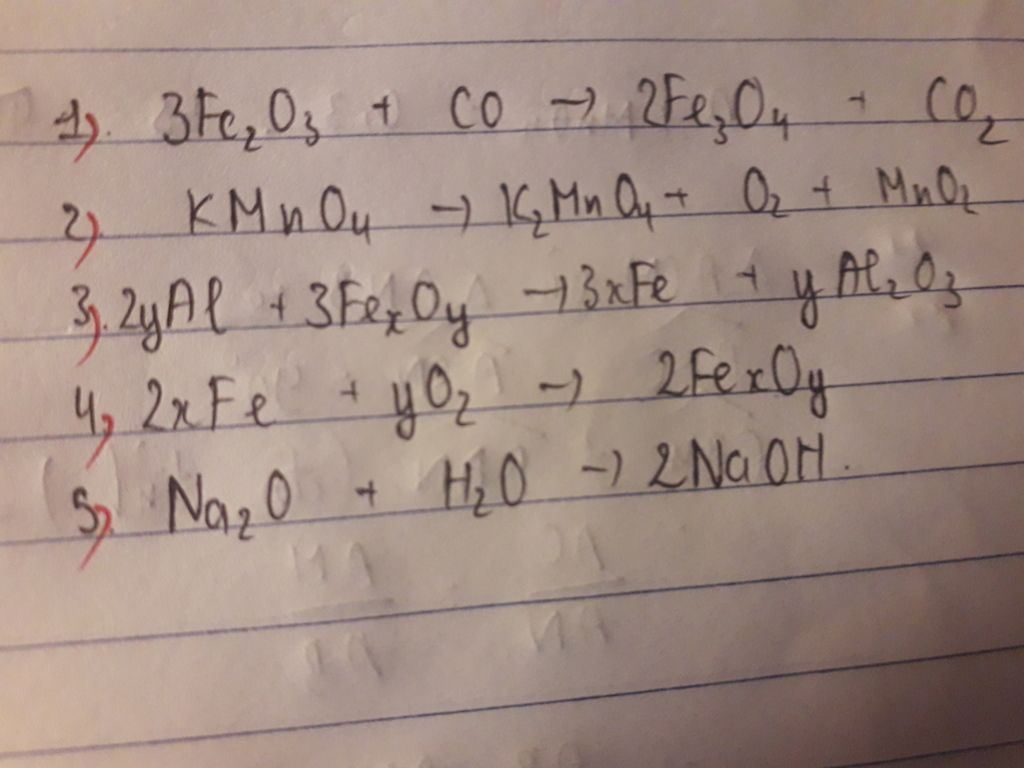 1). 3Fe₂O₃ + CO → 2Fe₃O₄ + CO₂
2). KMnO₄ → K₂MnO₄ + O₂ + MnO₂
3). 2yAl + 3FeₓOy → 3xFe + yAl₂O₃
4, 2xFe + yO₂ → 2FexOy
5). Na₂O + H₂O → 2NaOH.